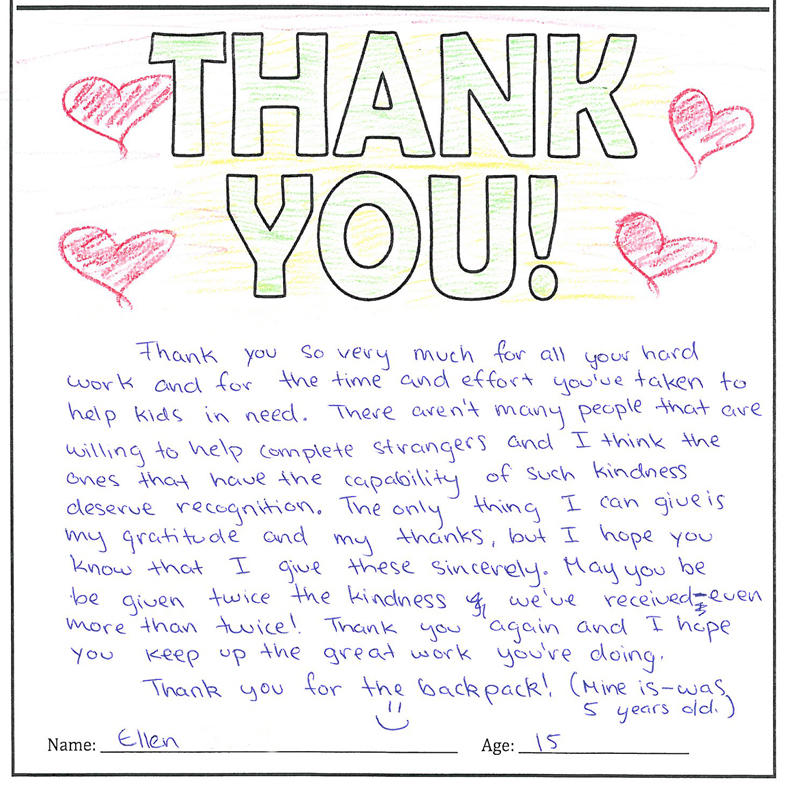 THANK
YOU!
Thank you so very much for all your hard
work and for the time and effort you've taken to
help kids in need. There aren't many people that are
willing to help complete strangers and I think the
ones that have the capability of such kindness
deserve recognition. The only thing I can give is
my gratitude and my thanks, but I hope you
know that I give these sincerely. May you be
be given twice the kindness we've received-even
more than twice! Thank you again and I hope
you keep up the great work you're doing.
Thank you for the backpack! (Mine is-was
5 years old.)
Name: Ellen Age: 15